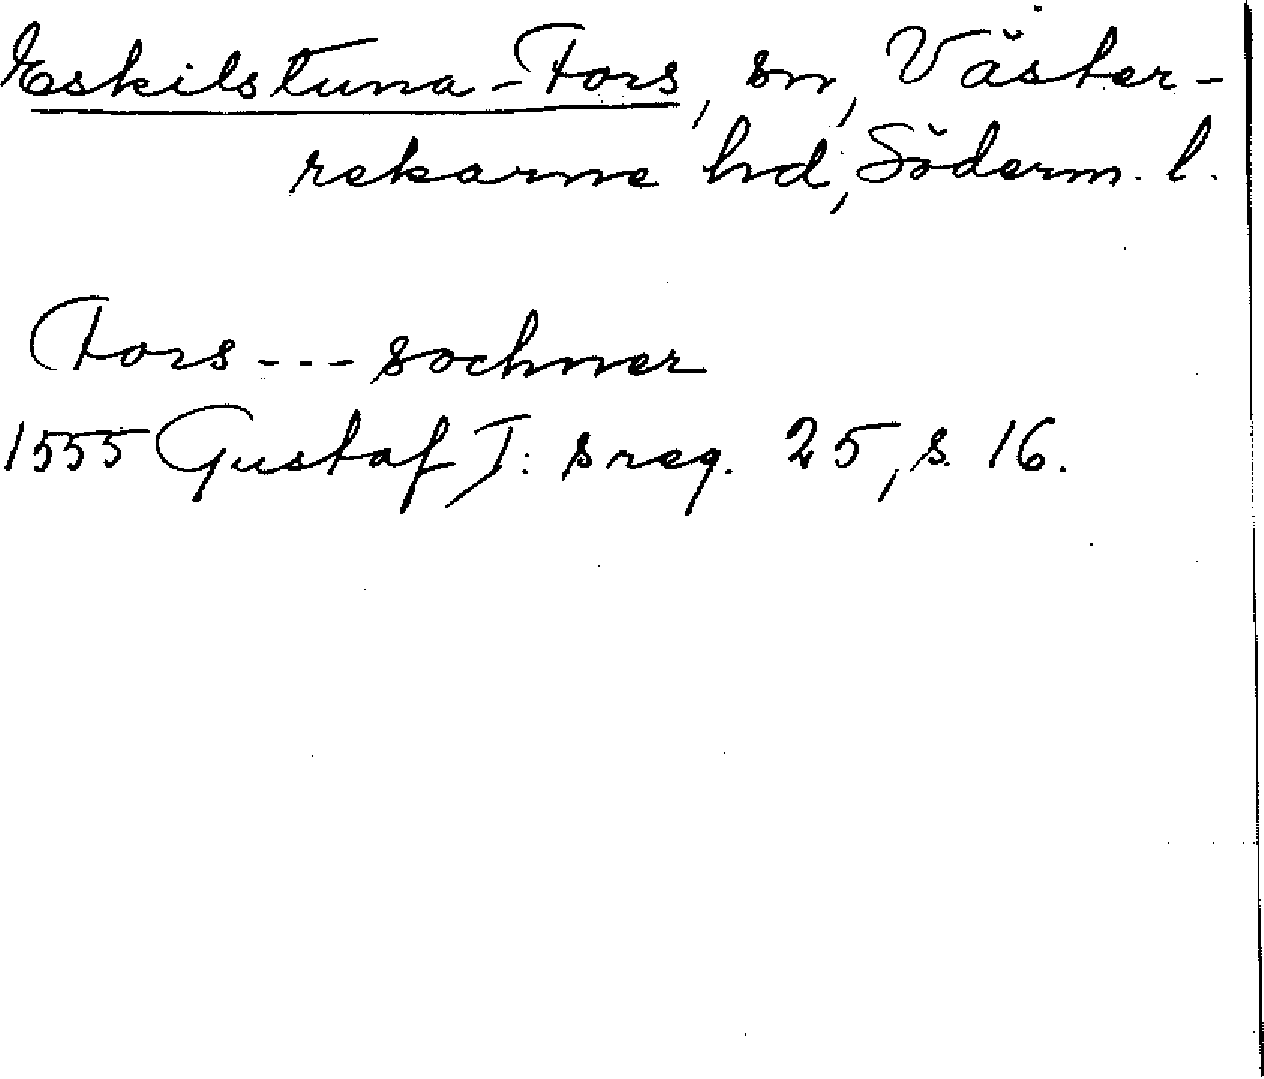 Eskilstuna-Fors, sn, Väster-
rekarne hd, Söderm. l.
Fors --- sochner
1555 Gustaf I: s reg. 25, s. 16.